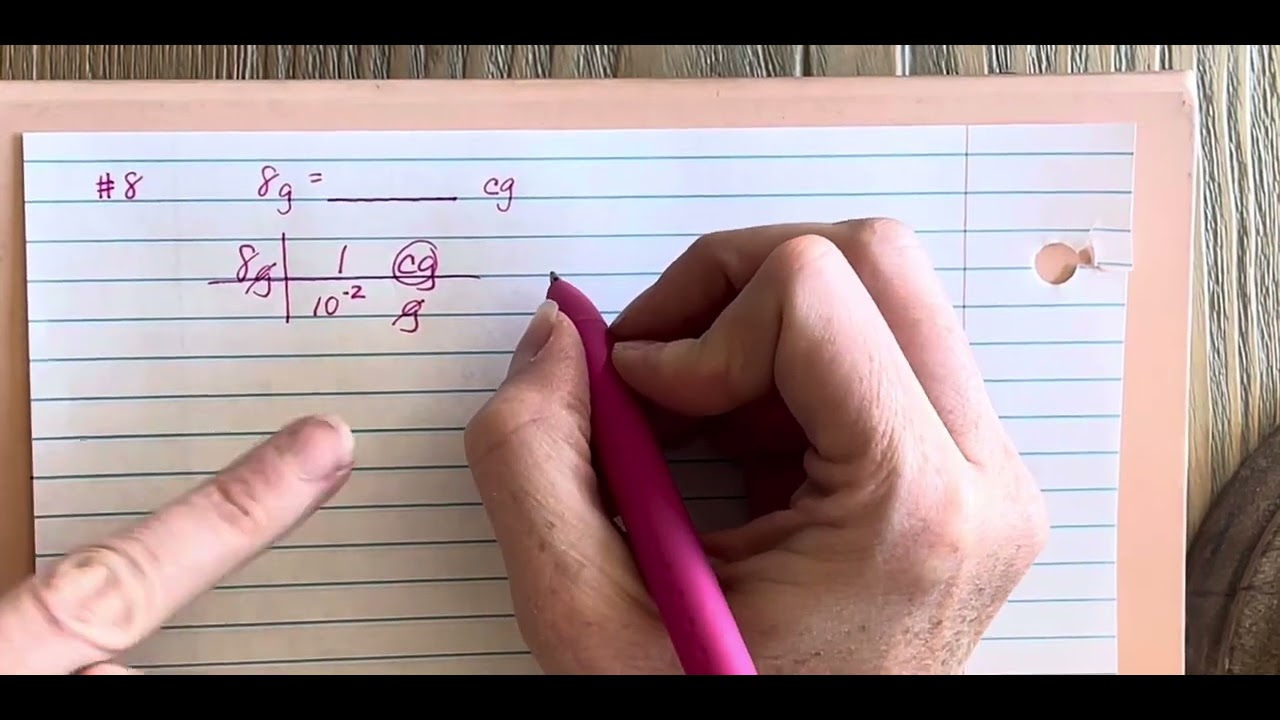 #8 8g = ______ cg
8g 1 cg
10⁻² g